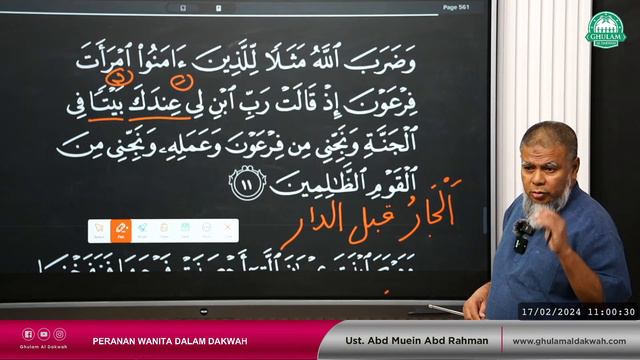 Page 561
GHULAM
AL DAKWAH
وَضَرَبَ ٱللَّهُ مَثَلًا لِّلَّذِينَ ءَامَنُوا۟ ٱمْرَأَتَ
فِرْعَوْنَ إِذْ قَالَتْ رَبِّ ٱبْنِ لِى عِندَكَ بَيْتًا فِى
ٱلْجَنَّةِ وَنَجِّنِى مِن فِرْعَوْنَ وَعَمَلِهِۦ وَنَجِّنِى مِنَ
ٱلْقَوْمِ ٱلظَّٰلِمِينَ ١١
اَلْجَارُ قبل الدار
Pen
17/02/2024 11:00:30
Ghulam Al Dakwah
PERANAN WANITA DALAM DAKWAH
Ust. Abd Muein Abd Rahman
www.ghulamaldakwah.com